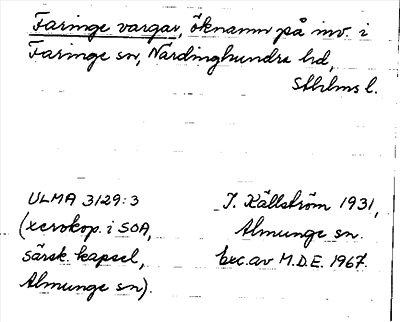 Faringe vargar, öknamn på inv. i
Faringe sn, Närdinghundra hd,
Sthlms l.
ULMA 3129:3
(xerokop. i SOA,
särsk. kapsel,
Almunge sn).
J. Källström 1931,
Almunge sn.
Exc. av M.D.E. 1967.